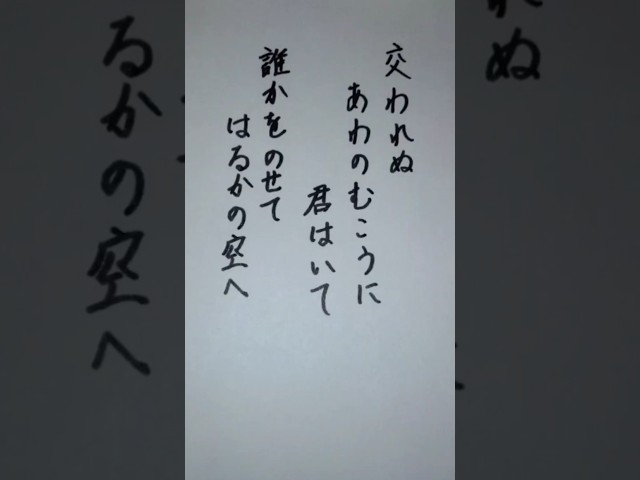 交われぬ
あわのむこうに
君はいて
誰かをのせて
はるかの空へ